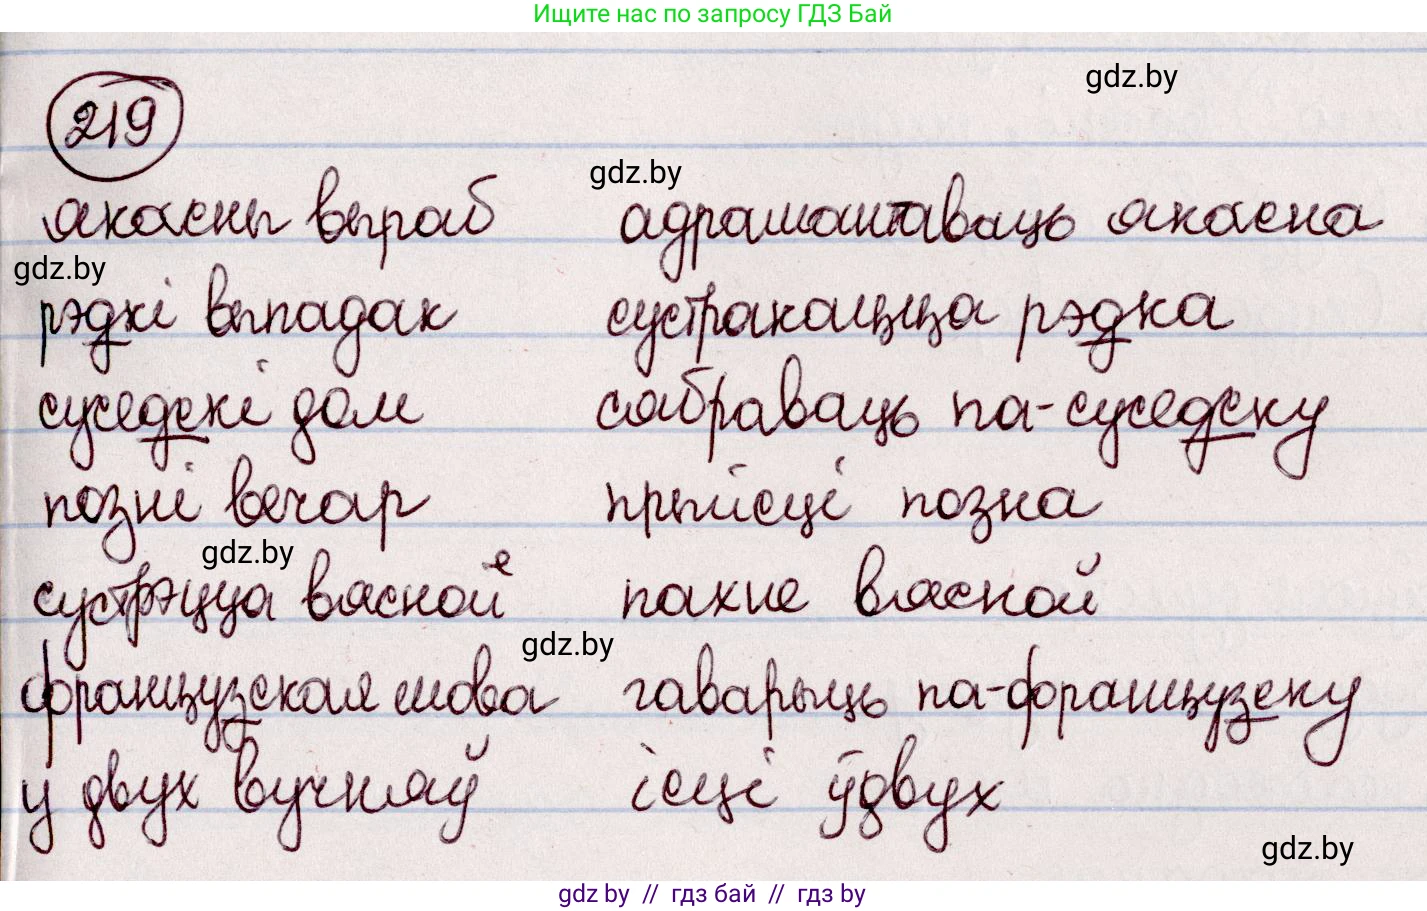 Ищите нас по запросу ГДЗ Бай
gdz.by
219
gdz.by
якасны выраб адрамантаваць якасна
gdz.by
рэдкі выпадак сустракаецца рэдка
суседскі дом сябраваць па-суседску
позні вечар прыйсці позна
gdz.by
сустрэцца вясной е пахне вясной
gdz.by
французская мова гаварыць па-французску
у двух вучняў ісці ўдвух
gdz.by
gdz by // гдз бай // гдз by